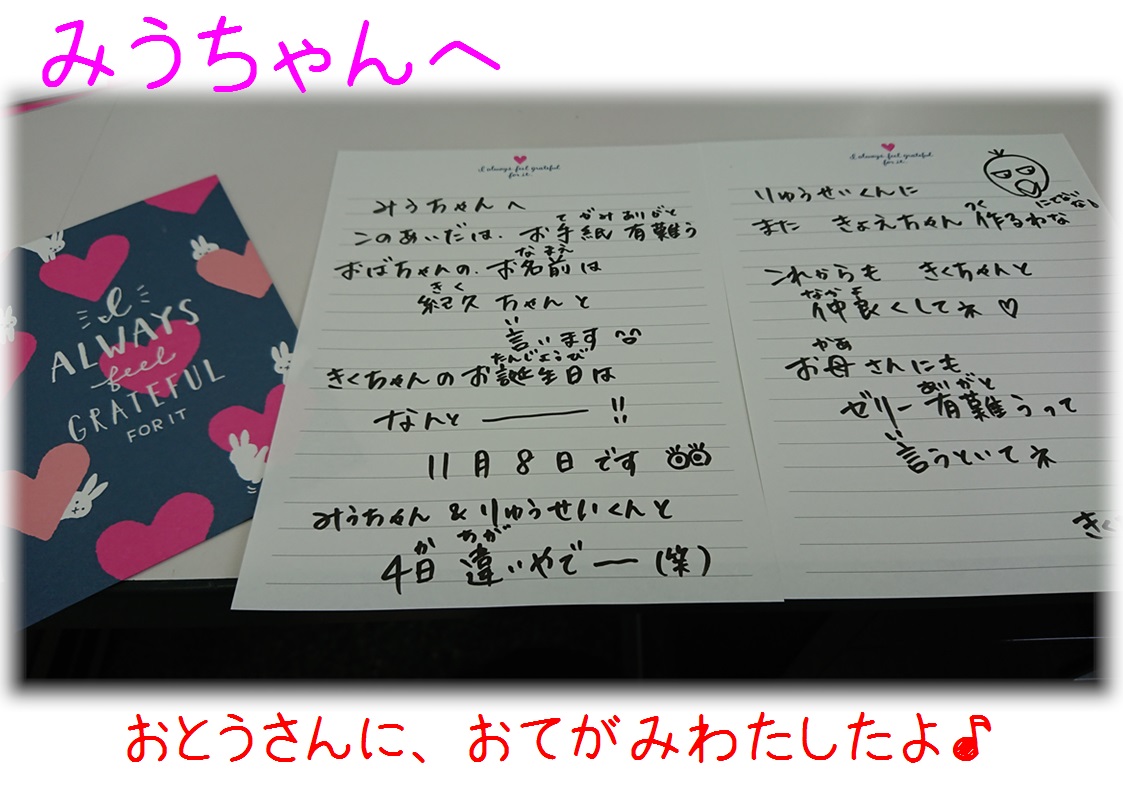 みうちゃんへ
I
ALWAYS
feel
GRATEFUL
FOR IT
I always feel grateful
for it.
みうちゃんへ
このあいだは、お手紙有難う
てがみありがと
おばちゃんの、お名前は
なまえ
紀久ちゃんと
きく
言います
い
きくちゃんのお誕生日は
たんじょうび
なんと ― !!
11月8日です
みうちゃん & りゅうせいくんと
4日違いやでー(笑)
か ちが
I always feel grateful
for it.
りゅうせいくんに
にてないな
また きょえちゃん作るわな
つく
これからも きくちゃんと
仲良くしてネ♡
なかよ
お母さんにも
かあ
ゼリー有難うって
ありがと
言うといてネ
い
きく
おとうさんに、おてがみわたしたよ♪